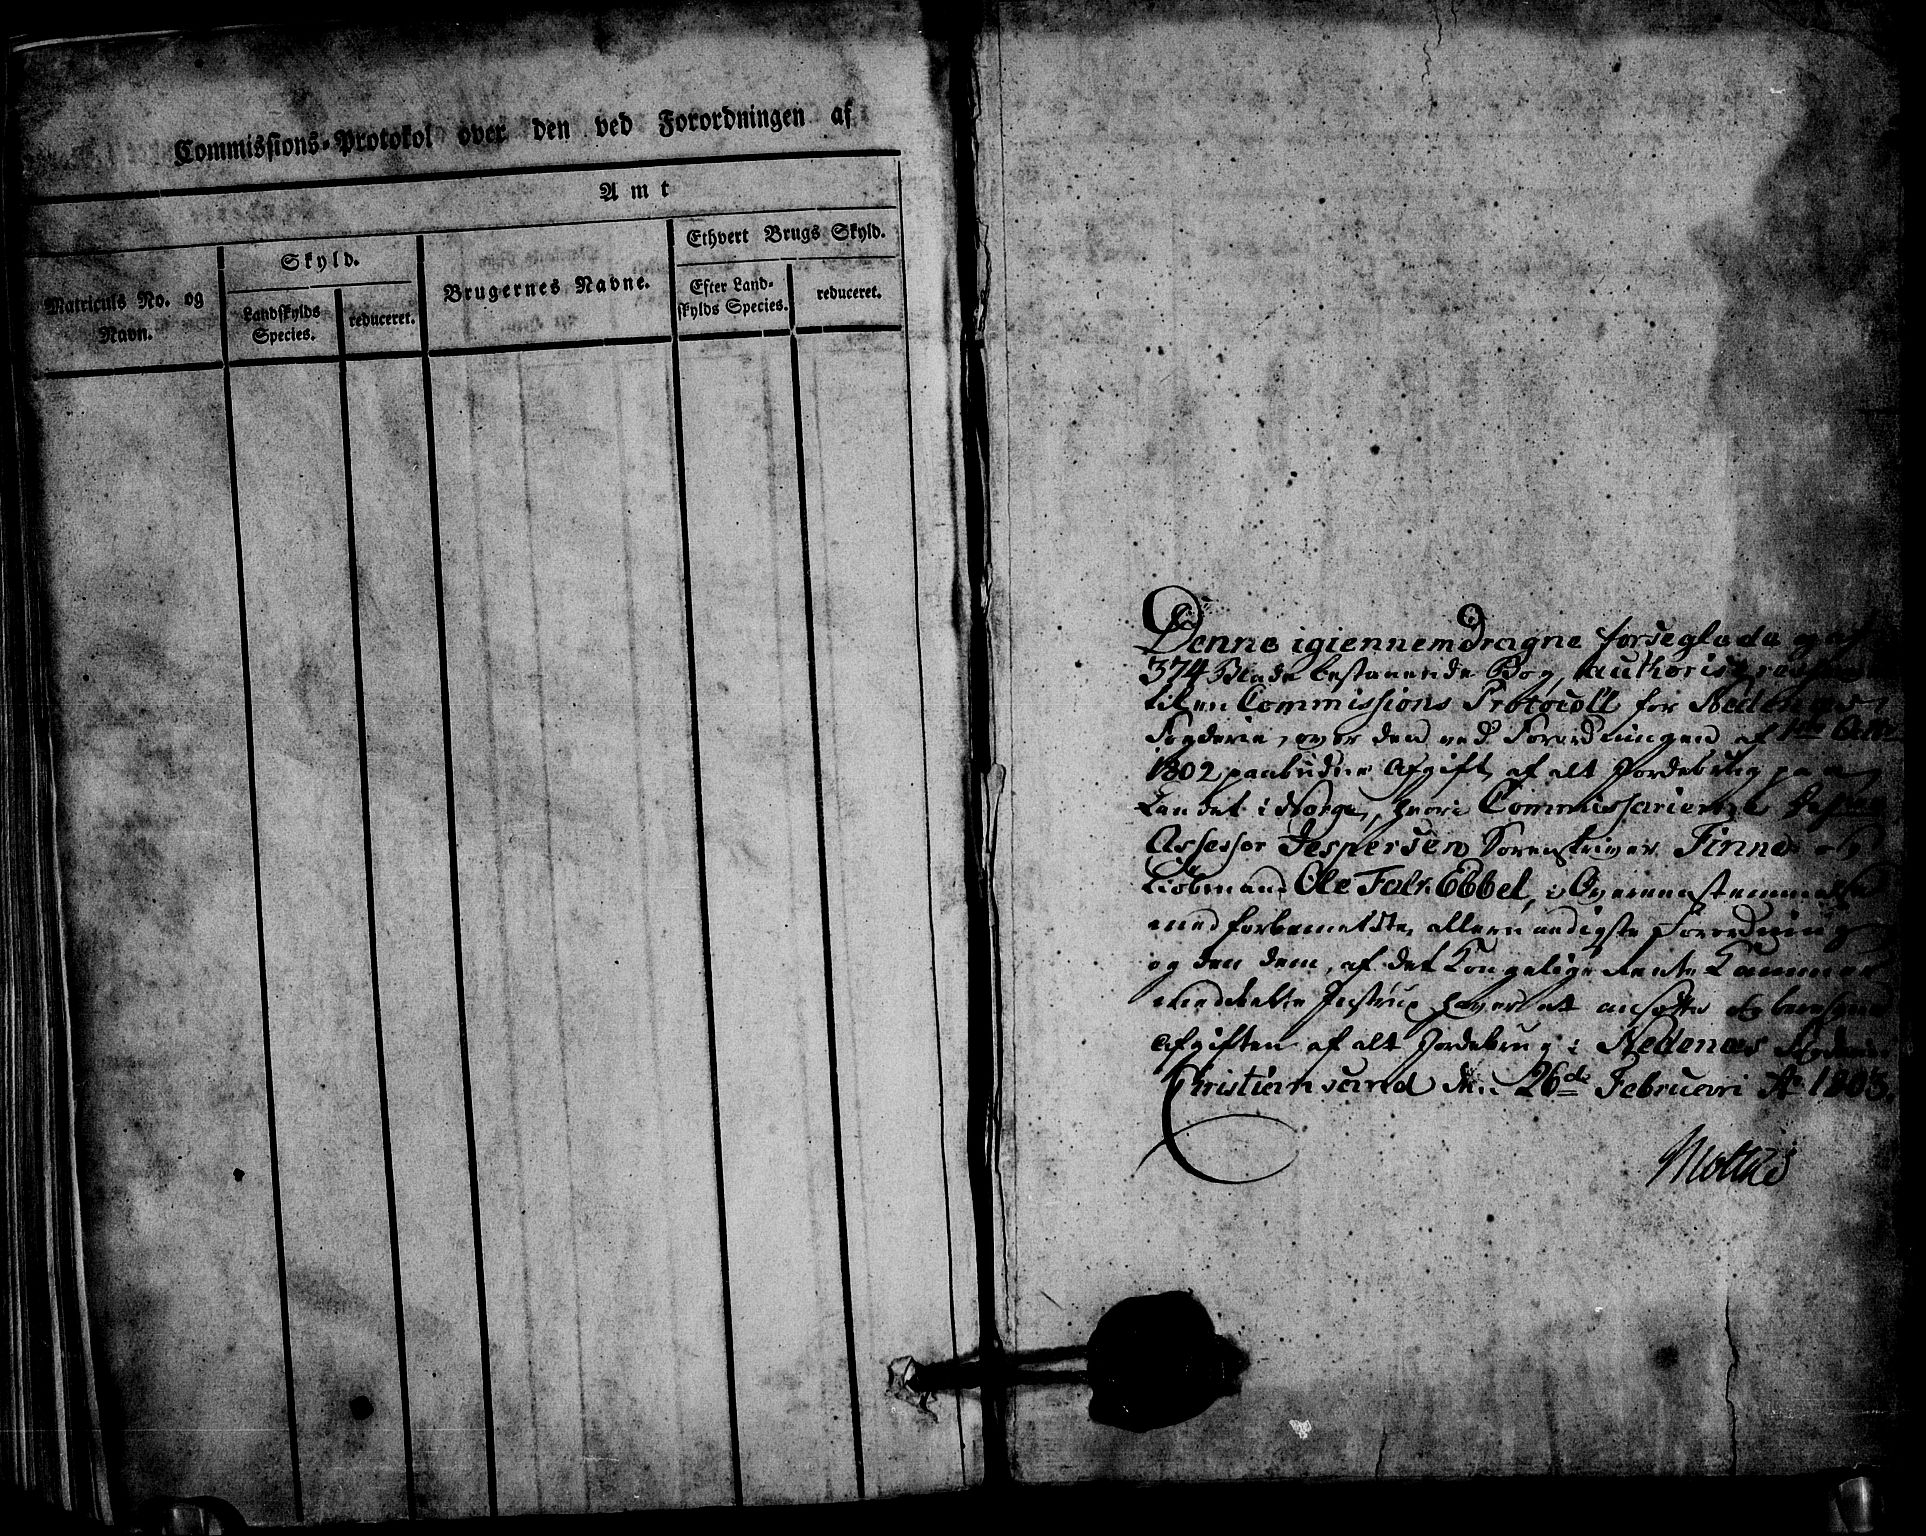 Commissions-Protokol over den ved Forordningen af
Amt
Matriculs No. og
Navn.
Skyld.
Landskylds
Species.
reduceret.
Brugernes Navne.
Ethvert Brugs Skyld.
Efter Land-
skylds Species.
reduceret.
Denne igiennemdragne forseglede og af
374 Blade bestaaende Bog, authoriseres
til en Commissions Protocoll for Nedenæs
Fogderie, over den ved Forordningen af 1ste Octbr
1802 paabudne Afgift af alt Jordebrug paa
Landet i Norge, hvori Commissarierne
Assessor Jespersen Sorenskriver Finne og
Kiøbmand Ole Falk Ebbel, i Overeensstemmelse
med forbemeldte allernaadigste Forordning
og den dem, af det Kongelige Rente Kammer
meddeelte Instrux haver at ansætte og beregne
Afgiften af alt Jordebrug i Nedenæs Fogderie.
Christiansand den 26de Februari Ao 1803.
Moltke